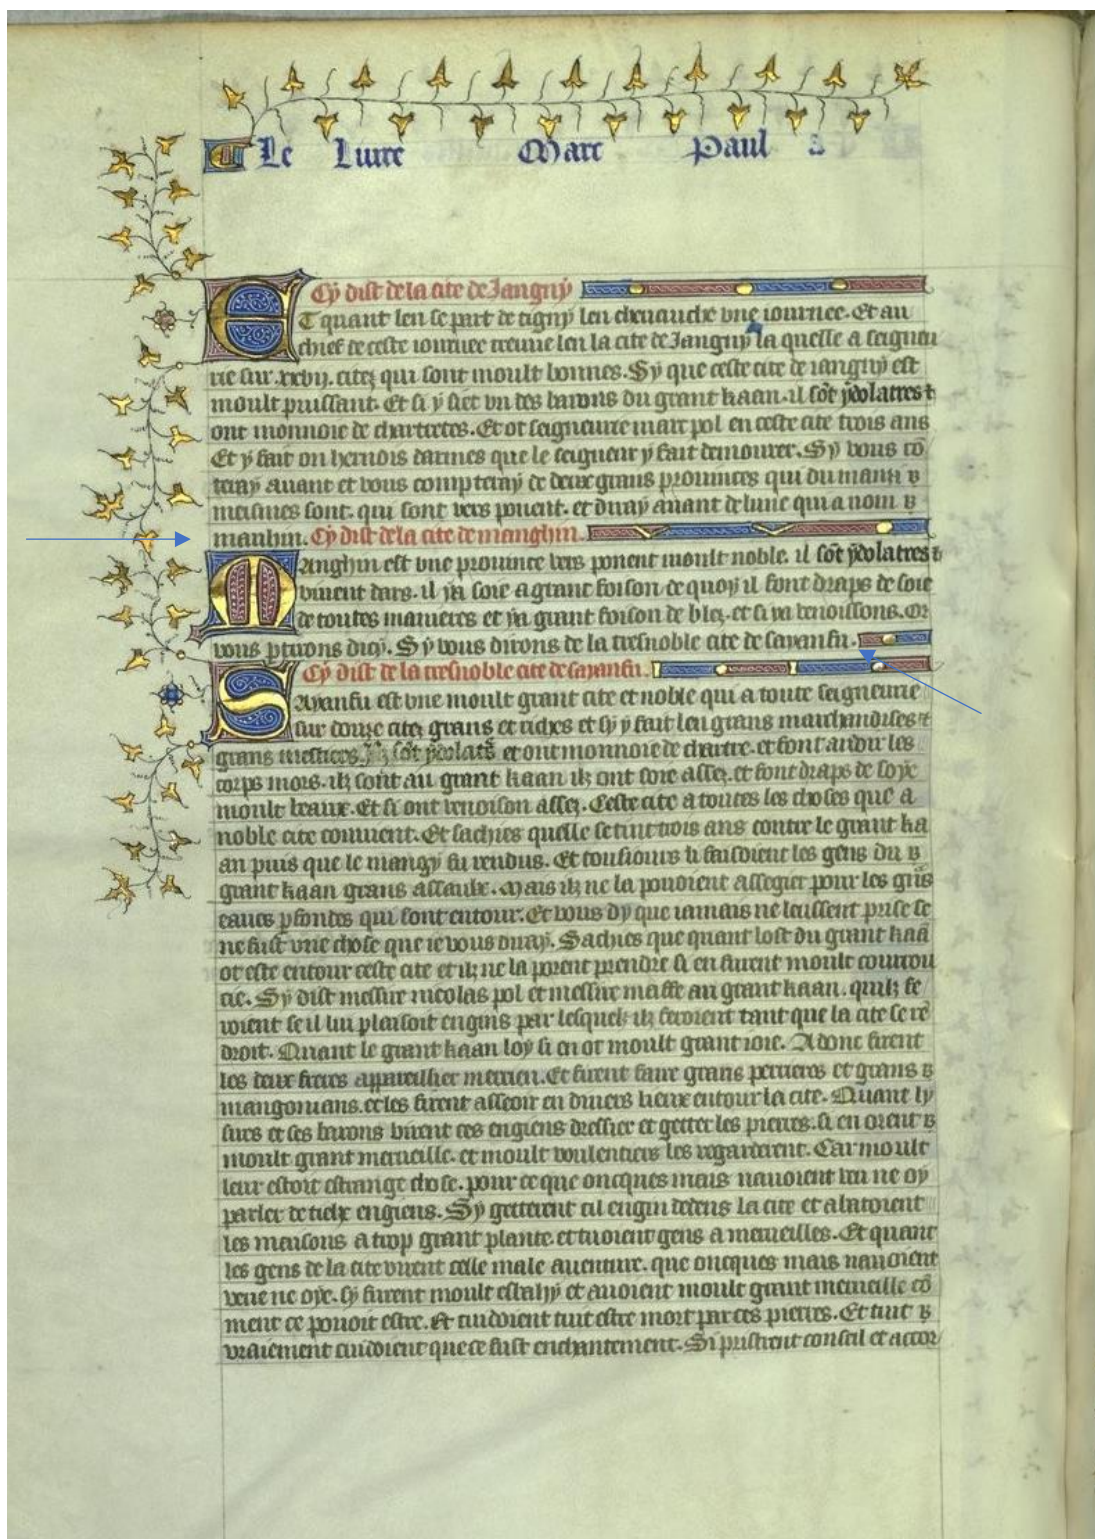 Le Liure Marc Paul
Cy dist de la cite de Jangny
Et quant len se part de tigny len cheuauche vne iournee. Et au
chief de ceste iournee treuue len la cite de Jangny la quelle a seigneu
rie sur .xxvij. citez qui sont moult bonnes. Sy que ceste cite de iangny est
moult puissant. Et si y siet vn des barons du grant kaan. il sõt ydolatres
ont monnoie de chartretes. Et ot seigneurie marc pol en ceste cite trois ans
Et y fait on hernois darmes que le seigneur y fait demourer. Sy vous cõ
teray auant et vous compteray de deux grans prouinces qui du manti
meismes sont. qui sont vers ponent. et diray auant de lune qui a nom
manhin. Cy dist de la cite de manghin.
Manghin est vne prouince vers ponent moult noble. il sõt ydolatres
viuent dars. il y a soie a grant foison de quoy il font draps de soie
de toutes manieres et y a grant foison de blez. et si y a venoissons. Or
vous ptirons dicy. Sy vous dirons de la tresnoble cite de sayanfu.
Cy dist de la tresnoble cite de sayanfu.
Sayanfu est vne moult grant cite et noble qui a toute seigneurie
sur douze citez grans et riches et sy y fait len grans marchandises
grans mestiers. Jlz sõt ydolatres et ont monnoie de chartre. et font ardoir les
corps mors. ilz sont au grant kaan ilz ont soie assez. et font draps de soye
moult beaux. Et si ont venoison assez. Ceste cite a toutes les choses que a
noble cite conuient. Et sachies quelle se tint trois ans contre le grant ka
an puis que le mangy fu rendus. Et tousiours li faisoient les gens du
grant kaan grans assaulx. Mais ilz ne la pouoient assegier pour les grãs
eaues pfondes qui sont entour. Et vous dy que iamais ne leussent prise se
ne fust vne chose que ie vous diray. Sachies que quant lost du grant kaã
ot este entour ceste cite et ilz ne la porent prendre si en furent moult courrou
cie. Sy dist messire nicolas pol et messire maffe au grant kaan. quilz fe
roient se il lui plaisoit engins par lesquelz ilz feroient tant que la cite se rẽ
droit. Quant le grant kaan loy si en ot moult grant ioie. Adonc firent
les deux freres appareillier merrien. Et firent faire grans perrieres et grans
mangonians. et les firent asseoir en diuers lieux entour la cite. Quant ly
sires et ses barons virent ces engiens dressier et getter les pierres. si en orent
moult grant merueille. et moult voulentiers les regarderent. Car moult
leur estoit estrange chose. pour ce que oncques mais nauoient veu ne oy
parler de tielx engiens. Sy getterent cil engin dedens la cite et abatoient
les meisons a trop grant plante. et tuoient gens a merueilles. Et quant
les gens de la cite virent celle male auenture. que oncques mais nauoient
veue ne oye. sy furent moult esbahy et auoient moult grant merueille cõ
ment ce pouoit estre. Et cuidoient tuit estre mort par ces pierres. Et tuit
vraiement cuidoient que ce fust enchantement. Si pristrent conseil et accor